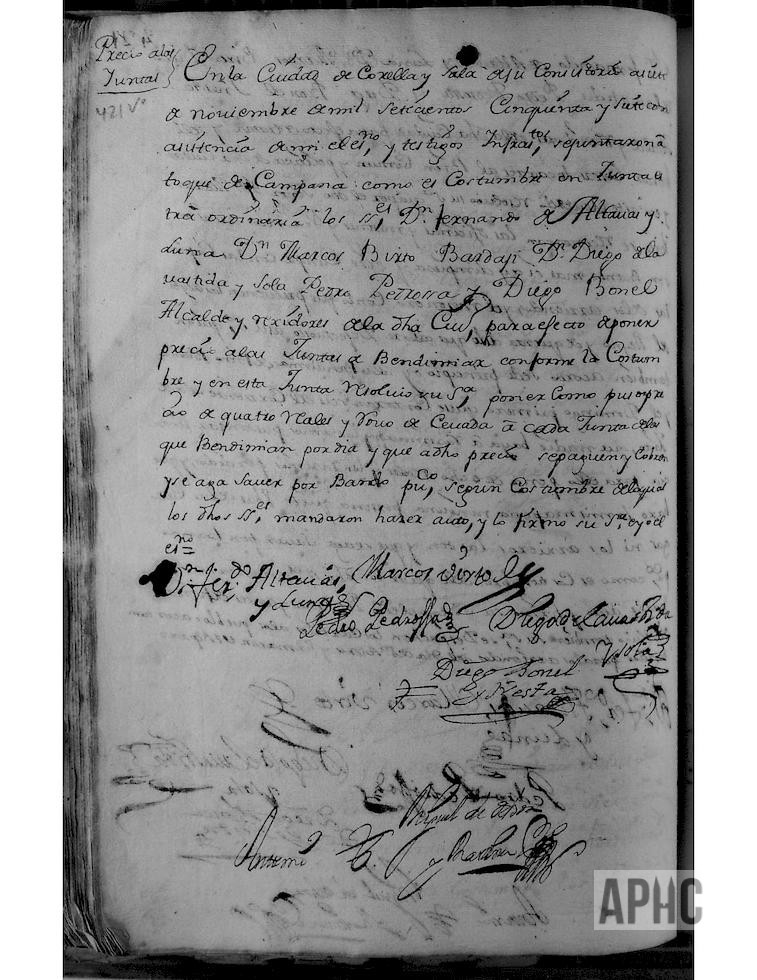 Precio a las
Juntas
421 vº
En la Ciudad de Corella y Sala de su Consistorio a siete
de noviembre de mil setecientos Cinquenta y siete con
asistencia de mi el esno, y testigos Infrastos, se juntaron a
toque de Campana como es Costumbre en Junta ex
tra ordinaria los sses Dn fernando de Altauas y
Luna Dn Marcos Birto Bardaji Dn Diego de la
uastida y Sola Pedro Pedrossa y Diego Bonel
Alcalde y rexidores de la dha Ciud, para efecto de poner
precio a las Juntas de Bendimiar conforme la Costum
bre y en esta Junta resoluio su Sa, poner como puso pre
cio de quatro reales y Robo de Ceuada a cada Junta de las
que Bendimian por dia y que a dho precio se paguen y Cobren
y se aga sauer por Bando puco, segun Costumbre de lo qual
los dhos sses, mandaron hazer auto, y lo firmo su Sa, e yo el
esno =
Dn Ferdo Altauas,
y Luna
Marcos Virto
Pedro Pedrossa
Diego de Lauastida
y Sola
Diego Bonel
y Resta
Antemi
Miguel de
APHC